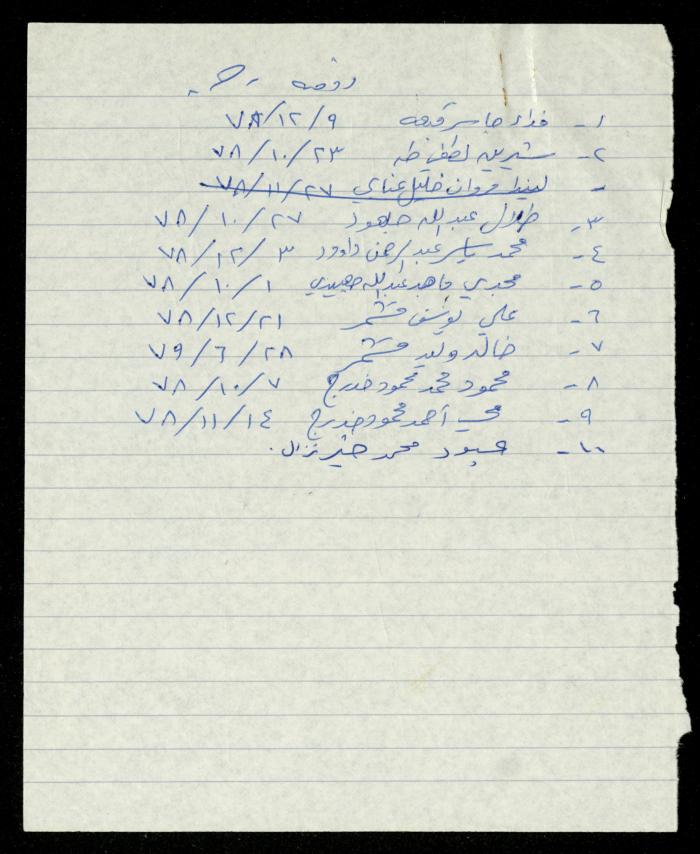 روضة
١- فداء جاسر قبعه ٧٨/١٢/٩
٢- شيرين لطفي طه ٧٨/١٠/٢٣
- ليندا مروان خليل عناي ٧٨/١١/٢٧
٣- طلال عبدالله جلعود ٧٨/١٠/٢٧
٤- محمد ياسر عبد الرحمن داوود ٧٨/١٢/٣
٥- مجدي مجاهد عبدالله جعيدي ٧٨/١٠/١
٦- علي يوسف قشمر ٧٨/١٢/٢١
٧- خالد وليد قشمر ٧٩/٦/٢٨
٨- محمود محمد محمود خدرج ٧٨/١٠/٧
٩- أحمد محمود خدرج ٧٨/١١/١٤
١٠- عبود محمد نزال